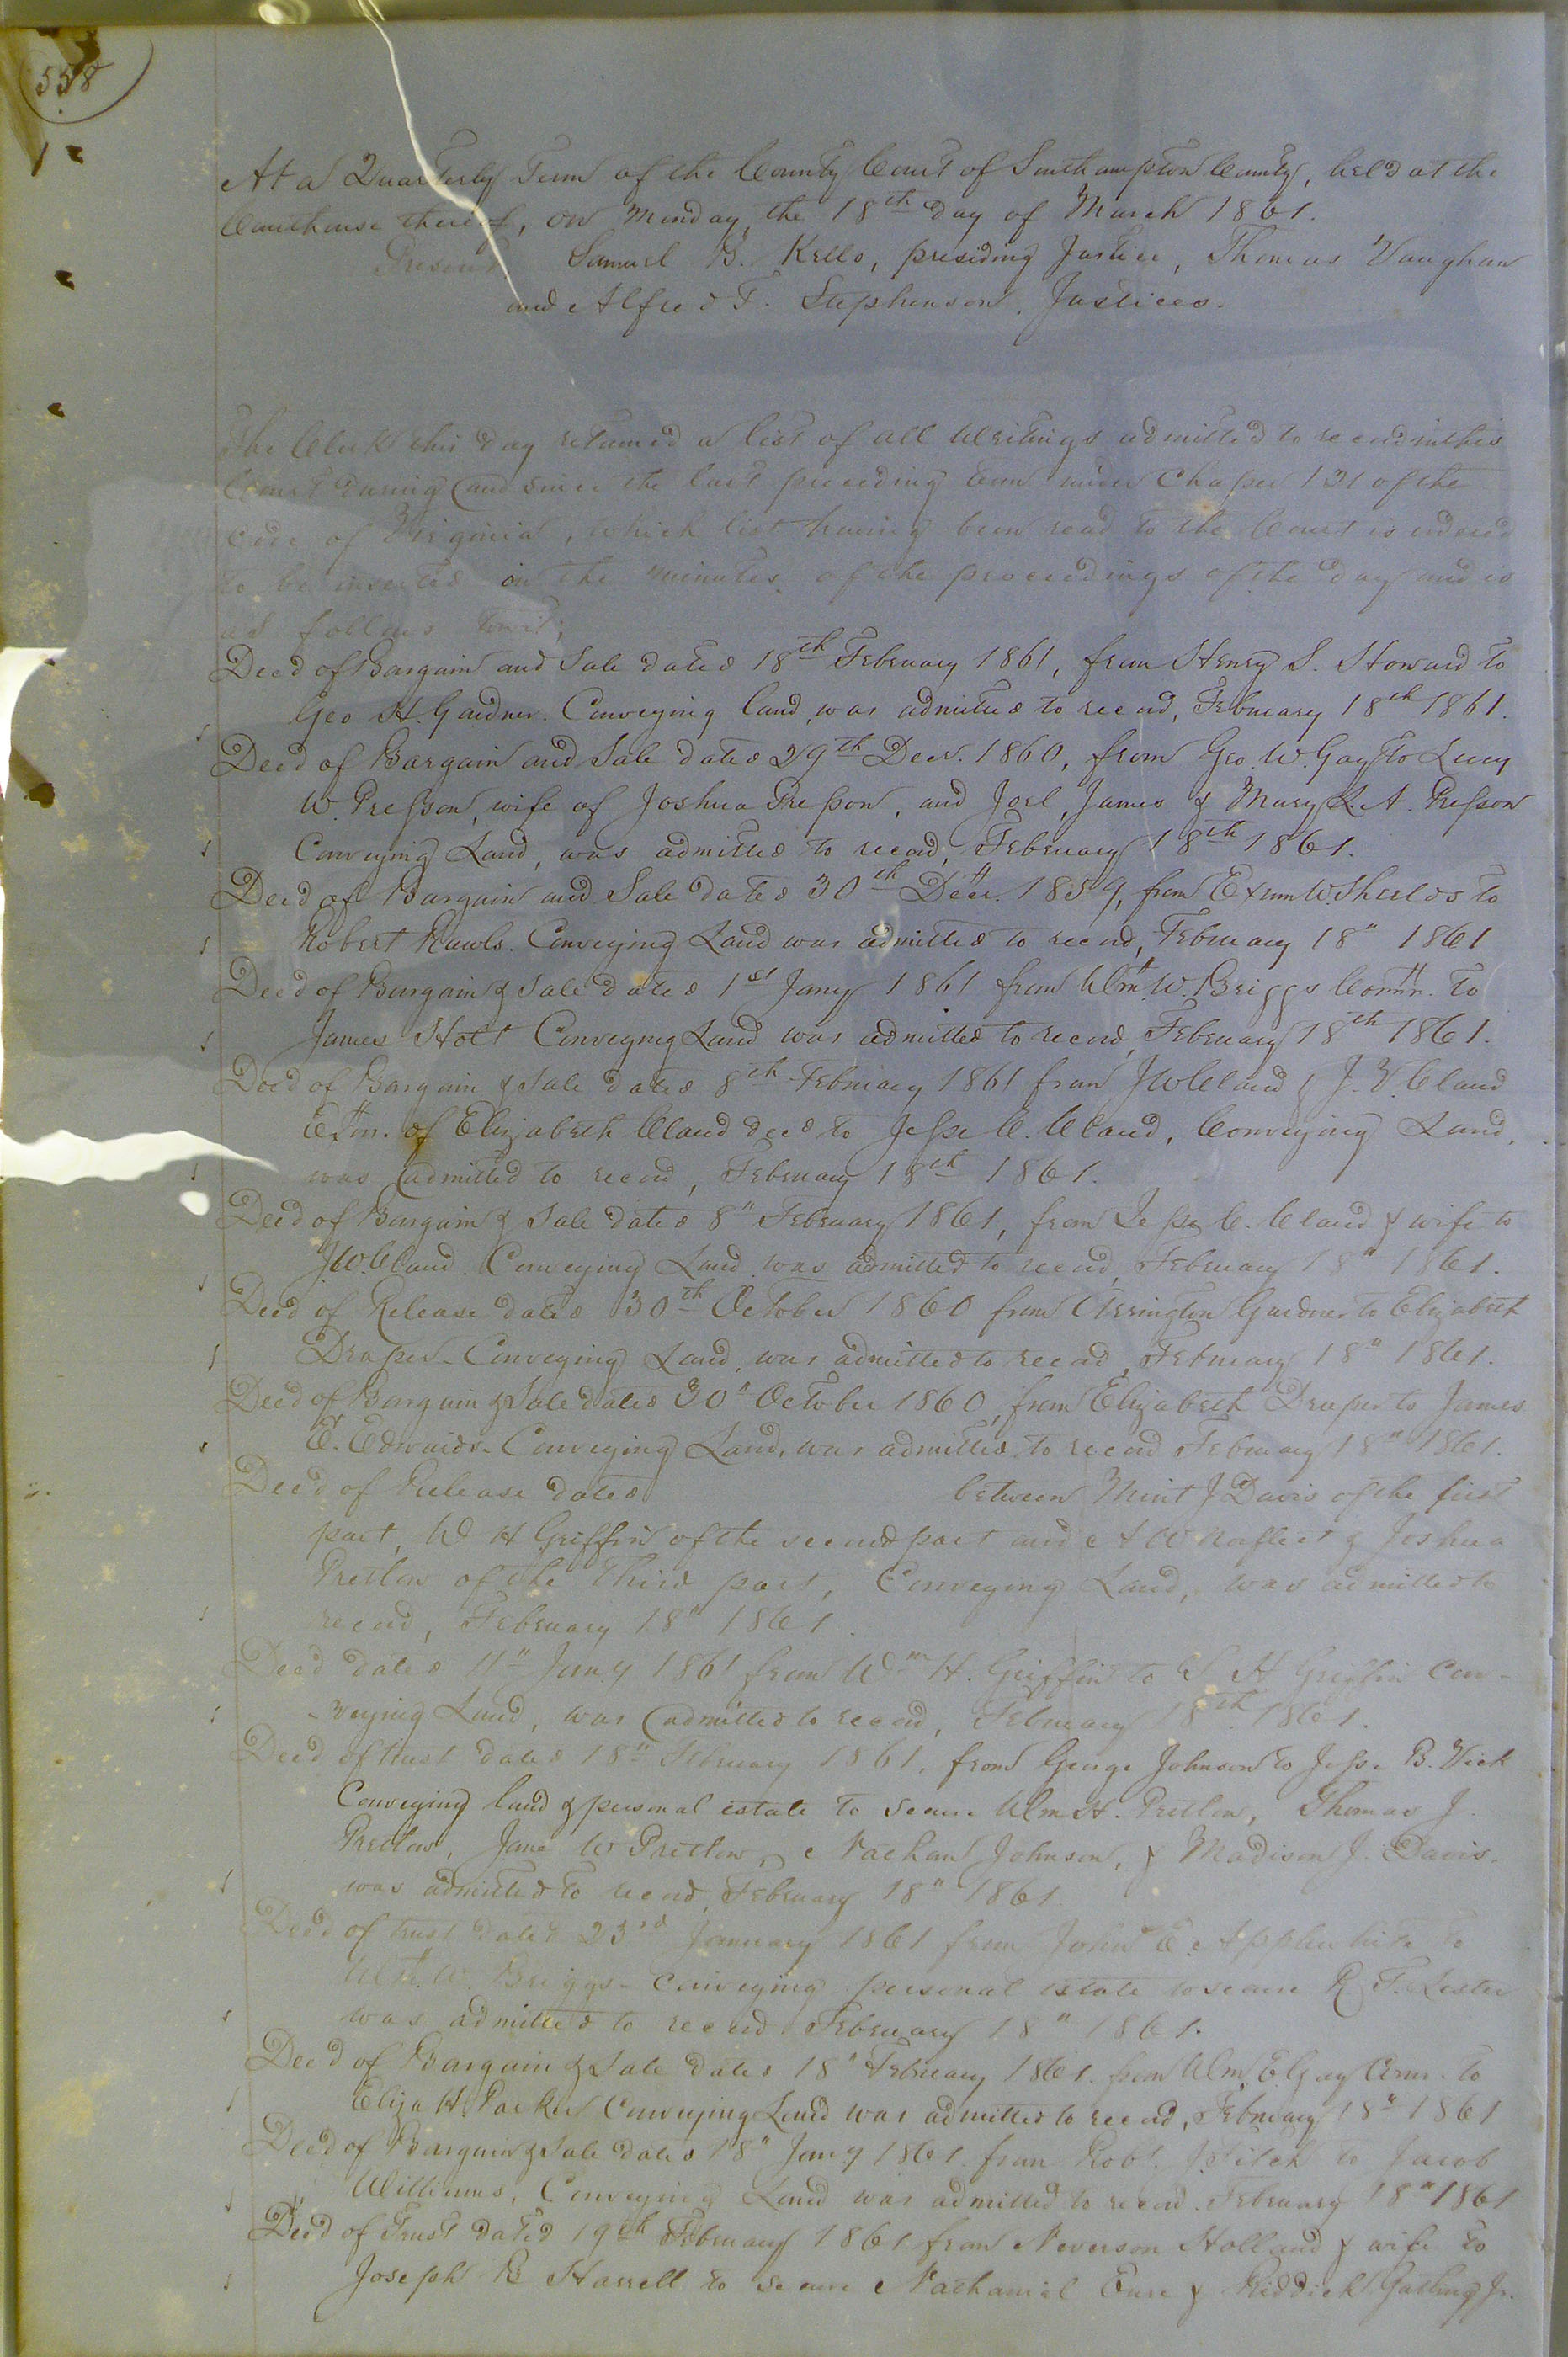 558
At a Quarterly Term of the County Court of Southampton County, held at the
Courthouse thereof, on Monday, the 18th day of March 1861.
Present Samuel B. Kello, presiding Justice, Thomas Vaughan
and Alfred F. Stephenson, Justices.
The Clerk this day returned a list of all Writings admitted to record in this
Court during (and since the last preceding term under Chapter 121 of the
Code of Virginia, which list having been read to the Court is ordered
to be inserted in the minutes of the proceedings of the day and is
as follows towit;
Deed of Bargain and Sale dated 18th February 1861, from Henry S. Howard to
Geo H. Gardner. Conveying land, was admitted to record, February 18th 1861.
Deed of Bargain and Sale dated 29th Decr. 1860, from Geo. W. Gay to Lucy
W. Presson, wife of Joshua Presson, and Joel, James & Mary L. A. Presson
Conveying Land, was admitted to record, February 18th 1861.
Deed of Bargain and Sale dated 30th Decr. 1859, from Exum W. Shields to
Robert Rawls. Conveying Land was admitted to record, February 18" 1861
Deed of Bargain & Sale dated 1st Jany 1861 from Wm. W. Briggs Comr. to
James Holt Conveying Land was admitted to record, February 18th 1861.
Deed of Bargain & Sale dated 8th February 1861 from J W Claud & J. V. Claud
Exrs. of Elizabeth Claud decd to Jesse C. Claud, Conveying Land,
was admitted to record, February 18th 1861.
Deed of Bargain & Sale dated 8" February 1861, from Jesse C. Claud & wife to
J W. Claud. Conveying Land was admitted to record, February 18" 1861.
Deed of Release dated 30th October 1860 from Arrington Gardner to Elizabeth
Draper - Conveying Land, was admitted to record, February 18" 1861.
Deed of Bargain & Sale dated 30" October 1860, from Elizabeth Draper to James
E. Edwards - Conveying Land, was admitted to record February 18" 1861.
Deed of Release dated between Mint J Davis of the first
part, W H Griffin of the second part and A W Norfleet & Joshua
Pretlow of the Third part, Conveying Land, was admitted to
record, February 18" 1861.
Deed dated 11" Jany 1861 from Wm H. Griffin to S H Griffin Con-
-veying Land, was admitted to record, February 18th 1861.
Deed of trust dated 18" February 1861, from George Johnson to Jesse B. Vick
Conveying land & personal estate to secure Wm H. Pretlow, Thomas J.
Pretlow, Jane W Pretlow, Nathan Johnson, & Madison J. Davis.
was admitted to record, February 18" 1861.
Deed of trust dated 23rd January 1861 from John E. Applewhite to
Wm. W. Briggs - Conveying personal estate to secure R. F. Lester
was admitted to record February 18" 1861.
Deed of Bargain & Sale dated 18" February 1861. from Wm E Gay to
Eliza H. Parker Conveying Land was admitted to record, February 18" 1861
Deed of Bargain & Sale dated 18" Jany 1861. from Robt. J. Fitch to Jacob
Williams, Conveying Land was admitted to record. February 18" 1861
Deed of Trust dated 19th February 1861 from Neverson Holland & wife to
Joseph B Harrell to secure Nathaniel Eure & Riddick Gatling Jr.